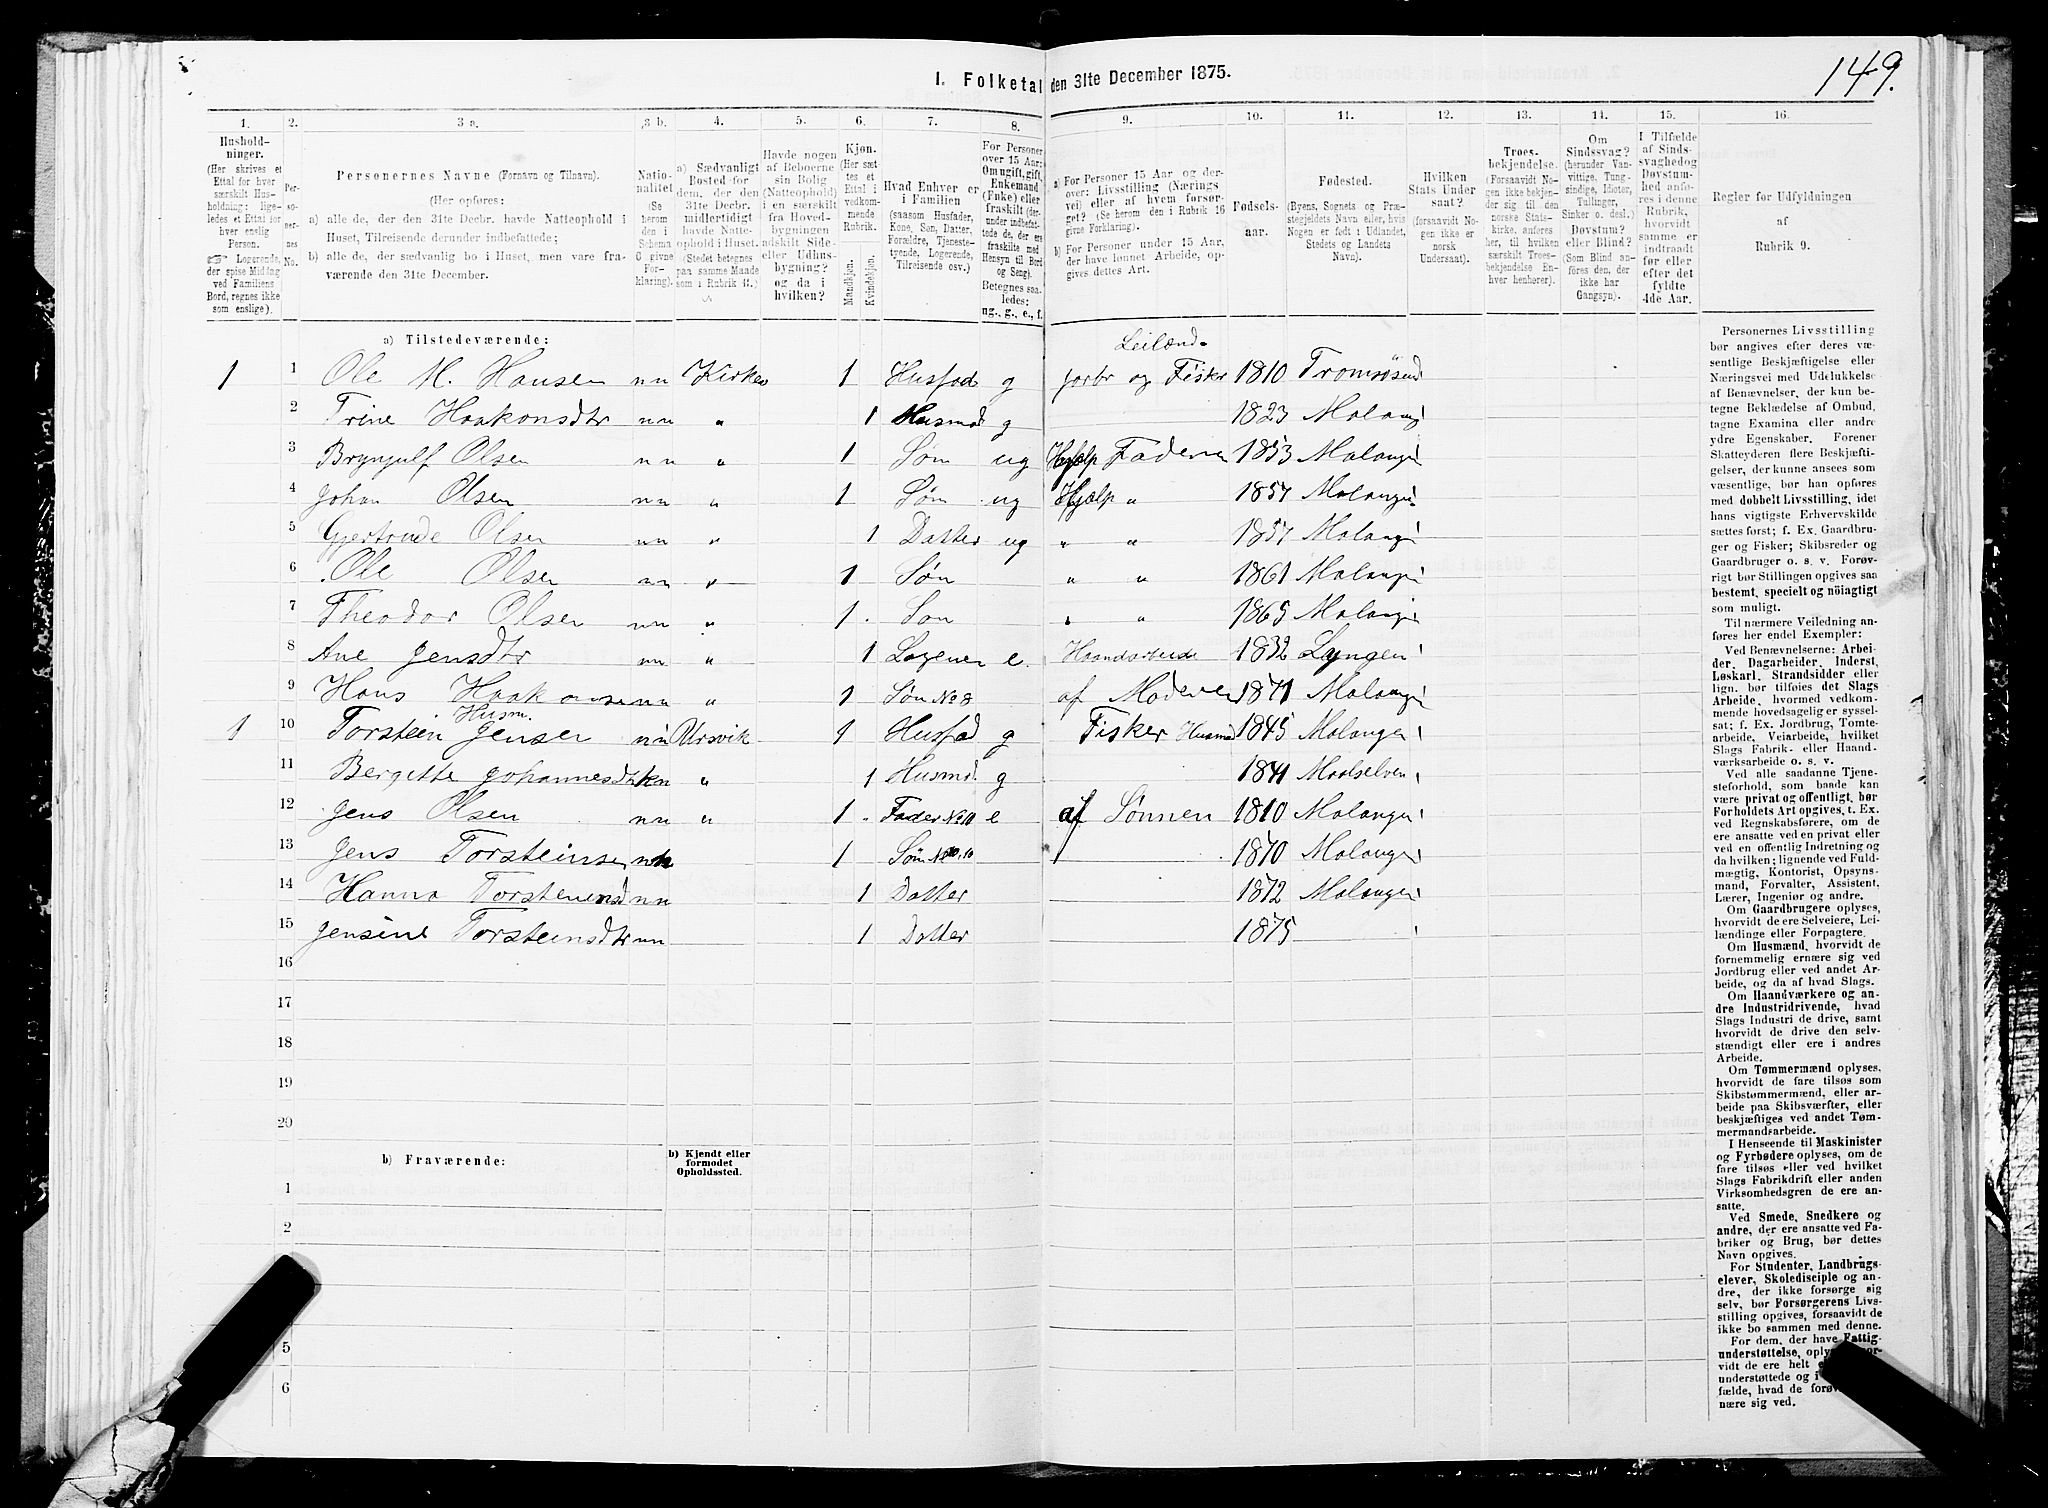 149.
I. Folketal den 31te December 1875.
1. 2. 3 a. 3 b. 4. 5. 6. 7. 8. 9. 10. 11. 12. 13. 14. 15. 16.
Hushold-
ninger.
(Her skrives et
Ettal for hver
særskilt Hus-
holdning; lige-
ledes et Ettal for
hver enslig
Person.
☞ Logerende,
der spise Middag
ved Familiens
Bord, regnes ikke
som enslige).
Per-
so-
ner-
nes
No.
Personernes Navne (Fornavn og Tilnavn).
(Her opføres:
a) alle de, der den 31te Decbr. havde Natteophold i
Huset, Tilreisende derunder indbefattede;
b) alle de, der sædvanlig bo i Huset, men vare fra-
værende den 31te December.
Natio-
nalitet
(Se
herom
den i
Schema
C givne
For-
klaring).
a) Sædvanligt
Bosted for
dem, der den
31te Decbr.
midlertidigt
havde Natte-
ophold i Huset.
(Stedet betegnes
paa samme Maade
som i Rubrik 11.)
Havde nogen
af Beboerne
sin Bolig
(Natteophold)
i en særskilt
fra Hoved-
bygningen
adskilt Side-
eller Udhus-
bygning?
og da i
hvilken?
Kjøn.
(Her sæt-
tes et
Ettal i
vedkom-
mende
Rubrik.
Mandkjøn.
Kvindekjøn.
Hvad Enhver er
i Familien
(saasom Husfader,
Kone, Søn, Datter,
Forældre, Tjeneste-
tyende, Logerende,
Tilreisende osv.)
For Personer
over 15 Aar:
Om ugift, gift,
Enkemand
(Enke) eller
fraskilt (der-
under indbefat-
tede de, der ere
fraskilte med
Hensyn til Bord
og Seng).
Betegnes saa-
ledes:
ug., g., e., f.
a) For Personer 15 Aar og der-
over: Livsstilling (Nærings
vei) eller af hvem forsør-
get? (Se herom den i Rubrik 16
givne Forklaring).
b) For Personer under 15 Aar,
der have lønnet Arbeide, op-
gives dettes Art.
Fødsels-
aar.
Fødested.
(Byens, Sognets og Præ-
stegjeldets Navn eller, hvis
Nogen er født i Udlandet,
Stedets og Landets
Navn).
Hvilken
Stats Under
saat?
(forsaavidt No-
gen ikke er
norsk
Undersaat).
Troes-
bekjendelse.
(Forsaavidt No-
gen ikke bekjen-
der sig til den
norske Stats-
kirke, anføres
her, til hvilken
særskilt Troes-
bekjendelse En-
hver henhører).
Om
Sindssvag?
(herunder Van-
vittige, Tung-
sindige, Idioter,
Tullinger,
Sinker o. desl.)
Døvstum?
eller Blind?
(Som Blind an-
føres den, der
ikke har
Gangsyn).
I Tilfælde
af Sindssvaghed og
Døvstum-
hed anfø-
res i denne
Rubrik,
hvorvidt
samme er
indtraadt
før eller
efter det
fyldte
4de Aar.
Regler for Udfyldningen
af
Rubrik 9.
a) Tilstedeværende:
Leilænd-
1 1 Ole M. Hansen nn Kirkes 1 Husfad g jorbr og Fisker 1810 Tromsösund
2 Trine Haakonsdtr nn „ 1 Husmod g 1823 Malang
3 Brynjulf Olsen nn „ 1 Søn ug Hjælp Faderen 1853 Malanger
4 Johan Olsen nn „ 1 Søn ug Hjælp „ 1857 Malanger
5 Gjertrude Olsen nn „ 1 Datter ug „ „ 1857 Malanger
6 Ole Olsen nn „ 1 Søn „ „ 1861 Malanger
7 Theodor Olsen nn „ 1 Søn „ „ 1865 Malanger
8 Ane Jensdtr nn „ 1 Logener e. Haandarbeide 1832 Lyngen
9 Hans Haakonsen nn „ 1 Søn No 8 af Moderen 1871 Malanger
Husm.
1 10 Torstein Jensen nn Ursvik 1 Husfad g Fisker Husmd 1845 Malanger
11 Bergitte Johannesdtr kn „ 1 Husmod g 1841 Maalselven
12 Jens Olsen nn „ 1 Fader No 10 e af Sønnen 1810 Malanger
13 Jens Torsteinsen nk 1 Søn No. 10 1870 Malanger
14 Hanna Torsteinsd nn 1 Datter 1872 Malanger
15 Jensine Torsteinsdtr nn 1 Datter 1875
16
17
18
19
20
b) Fraværende:
b) Kjendt eller
formodet
Opholdssted.
1
2
5
6
Personernes Livsstilling
bør angives efter deres væ-
sentlige Beskjæftigelse eller
Næringsvei med Udelukkelse
af Benævnelser, der kun be-
tegne Beklædelse af Ombud,
tagne Examina eller andre
ydre Egenskaber. Forener
Skatteyderen flere Beskjæfti-
gelser, der kunne ansees som
væsentlige, bør han opgives
med dobbelt Livsstilling, idet
hans vigtigste Erhvervskilde
sættes først; f. Ex. Gaardbru-
ger og Fisker; Skibsreder og
Gaardbruger o. s. v. Forøv-
rigt bør Stillingen opgives saa
bestemt, specielt og nöiagtigt
som muligt.
Til nærmere Veiledning an-
føres her endel Exempler:
Ved Benævnelserne: Arbei-
der, Dagarbeider, Inderst,
Løskarl, Strandsidder eller
lign. bør tilføies det Slags
Arbeide, hvormed vedkom-
mende hovedsagelig er syssel-
sat; f. Ex. Jordbrug, Tomte-
arbeide, Veiarbeide, hvilket
Slags Fabrik- eller Haand-
værksarbeide o. s. v.
Ved alle saadanne Tjene-
steforhold, som baade kan
være privat og offentligt, bør
Forholdets Art opgives, t. Ex.
ved Regnskabsførere, om de
ere ansatte ved en privat eller
ved en offentlig Indretning og
da hvilken; lignende ved Fuld-
mægtig, Kontorist, Opsyns-
mand, Forvalter, Assistent,
Lærer, Ingeniør og andre.
Om Gaardbrugere oplyses,
hvorvidt de ere Selveiere, Lei-
lændinge eller Forpagtere.
Om Husmænd, hvorvidt de
fornemmelig ernære sig ved
Jordbrug eller ved andet Ar-
beide, og da af hvad Slags.
Om Haandværkere og an-
dre Industridrivende, hvad
Slags Industri de drive, samt
hvorvidt de drive den selv-
stændigt eller ere i andres
Arbeide.
Om Tømmermænd oplyses,
hvorvidt de fare tilsøs som
Skibstømmermænd, eller ar-
beide paa Skibsværfter, eller
beskjæftiges ved andet Tøm-
mermandsarbeide.
I Henseende til Maskinister
og Fyrbødere oplyses, om de
fare tilsøs eller ved hvilket
Slags Fabrikdrift eller anden
Virksomhedsgren de ere an-
satte.
Ved Smede, Snedkere og
andre, der ere ansatte ved Fa-
briker og Brug, bør dettes
Navn opgives.
For Studenter, Landbrugs-
elever, Skoledisciple og an-
dre, der ikke forsørge sig
selv, bør Forsørgerens Livs-
stilling opgives, forsaavidt de
ikke bo sammen med denne.
For dem, der have Fattig-
understøttelse, oply
vidt de ere helt
understøttede og i
fælde, hvad de
nære sig ved.